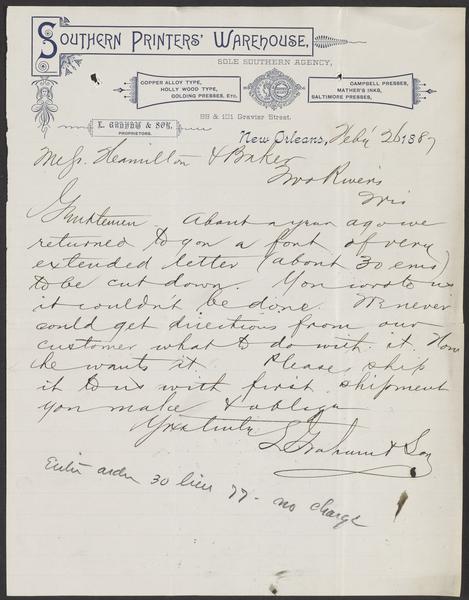 SOUTHERN PRINTERS' WAREHOUSE,
SOLE SOUTHERN AGENCY,
COPPER ALLOY TYPE,
HOLLY WOOD TYPE,
GOLDING PRESSES, Etc.
CAMPBELL PRESSES,
MATHER'S INKS,
BALTIMORE PRESSES,
L. GRAHAM & SON,
PROPRIETORS.
99 & 101 Gravier Street.
New Orleans, Feby 26 1887
Mess. Hamilton & Baker
Two Rivers
Wis
Gentlemen About a year ago we
returned to you a font of very
extended letter (about 30 ems)
to be cut down. You wrote us
it couldn't be done. We never
could get directions from our
customer what to do with it. Now
he wants it. Please ship
it to us with first shipment
you make & oblige
Yrs truly
L Graham & Son
Enter order 30 line 77 - no charge